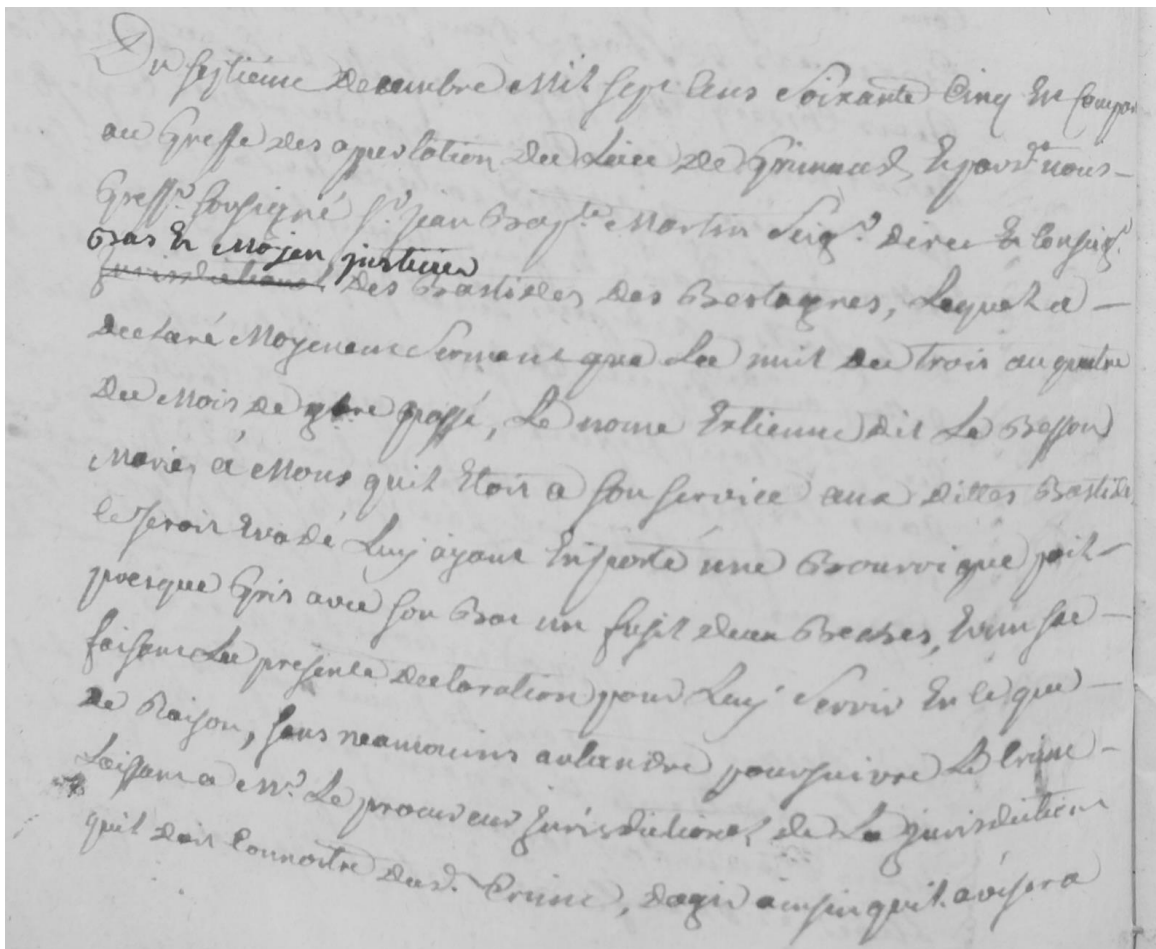 Du septiéme decembre Mil sept cens soixante cinq En Compar
au Greffe des appellation du Lieu de Grimaud, Et par dt nous
Greffr soussigné Sr jean Bapte Martin Seigr direc Et Conseigr
Bas Et Mojen justicier
jurisdictional des Bastides des Bertagnes, Lequel a
declaré Moyenant Serment que La nuit du trois au quatre
du Mois de 9bre passé, Le nomé Estienne dit Le Besson
Marié a Mons quil Etoit a son service aux dittes Bastides
le seroit Evadé Luy ayant Emporté une Bourrique poil
presque Gris avec son Bas un fusil deux Beches, Et un sac
faisant La presente declaration pour Luy Servir En ce que
de Raison, sans neamoins antandre poursuivre Le Crime
Laissant a Mr Le procureur jurisdictionel de La jurisdiction
quil doit Connoitre dud. Crime, dagir ainsin quil avisera